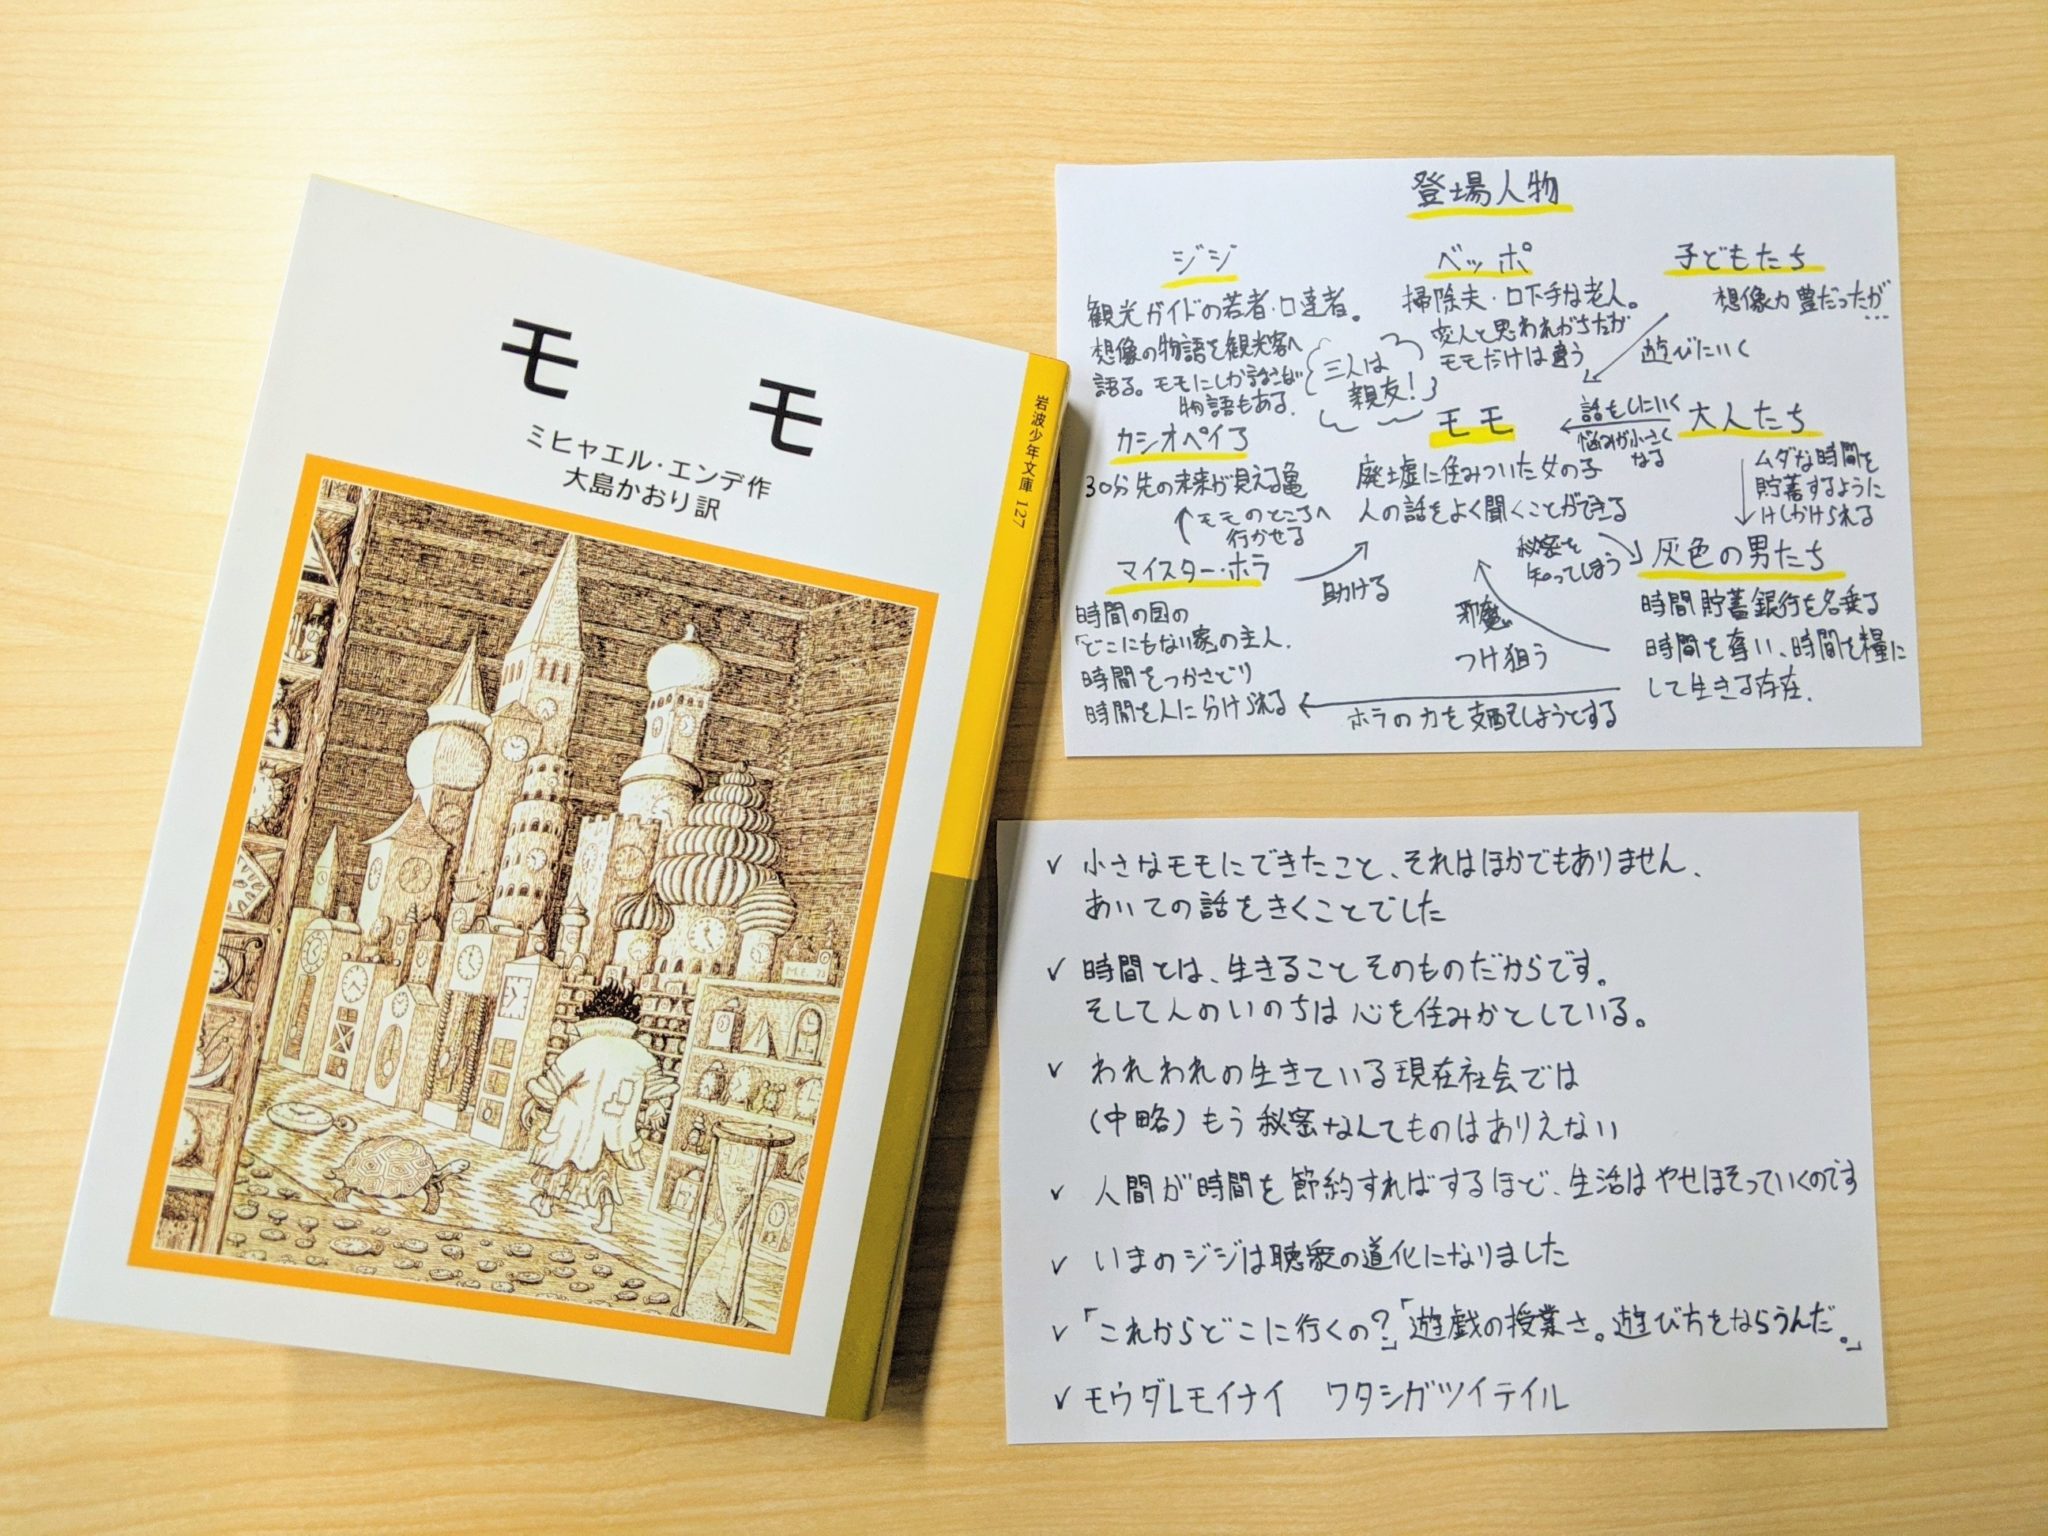 モモ
ミヒャエル・エンデ作
大島かおり訳
岩波少年文庫 127
M.E. 73
登場人物
ジジ
観光ガイドの若者・口達者。
想像の物語を観光客へ
語る。モモにしか話さない
物語もある.
ベッポ
掃除夫・口下手な老人。
変人と思われがちだが
モモだけは違う
三人は
親友!
子どもたち
想像力豊だったが…
遊びにいく
カシオペイア
30分先の未来が見える亀
モモのところへ
行かせる
モモ
廃墟に住みついた女の子
人の話をよく聞くことができる
話をしにいく
悩みが小さく
なる
大人たち
ムダな時間を
貯蓄するように
けしかけられる
マイスター・ホラ
時間の国の
「どこにもない家」の主人.
時間をつかさどり
時間を人に分けられる
助ける
秘密を
知ってしまう
邪魔
つけ狙う
灰色の男たち
時間貯蓄銀行を名乗る
時間を奪い、時間を糧に
して生きる存在.
ホラの力を支配しようとする
✓ 小さなモモにできたこと、それはほかでもありません、
あいての話をきくことでした
✓ 時間とは、生きることそのものだからです。
そして人のいのちは心を住みかとしている。
✓ われわれの生きている現在社会では
(中略)もう秘密なんてものはありえない
✓ 人間が時間を節約すればするほど、生活はやせほそっていくのです
✓ いまのジジは聴衆の道化になりました
✓ 「これからどこに行くの?」「遊戯の授業さ。遊び方をならうんだ。」
✓ モウダレモイナイ ワタシガツイテイル